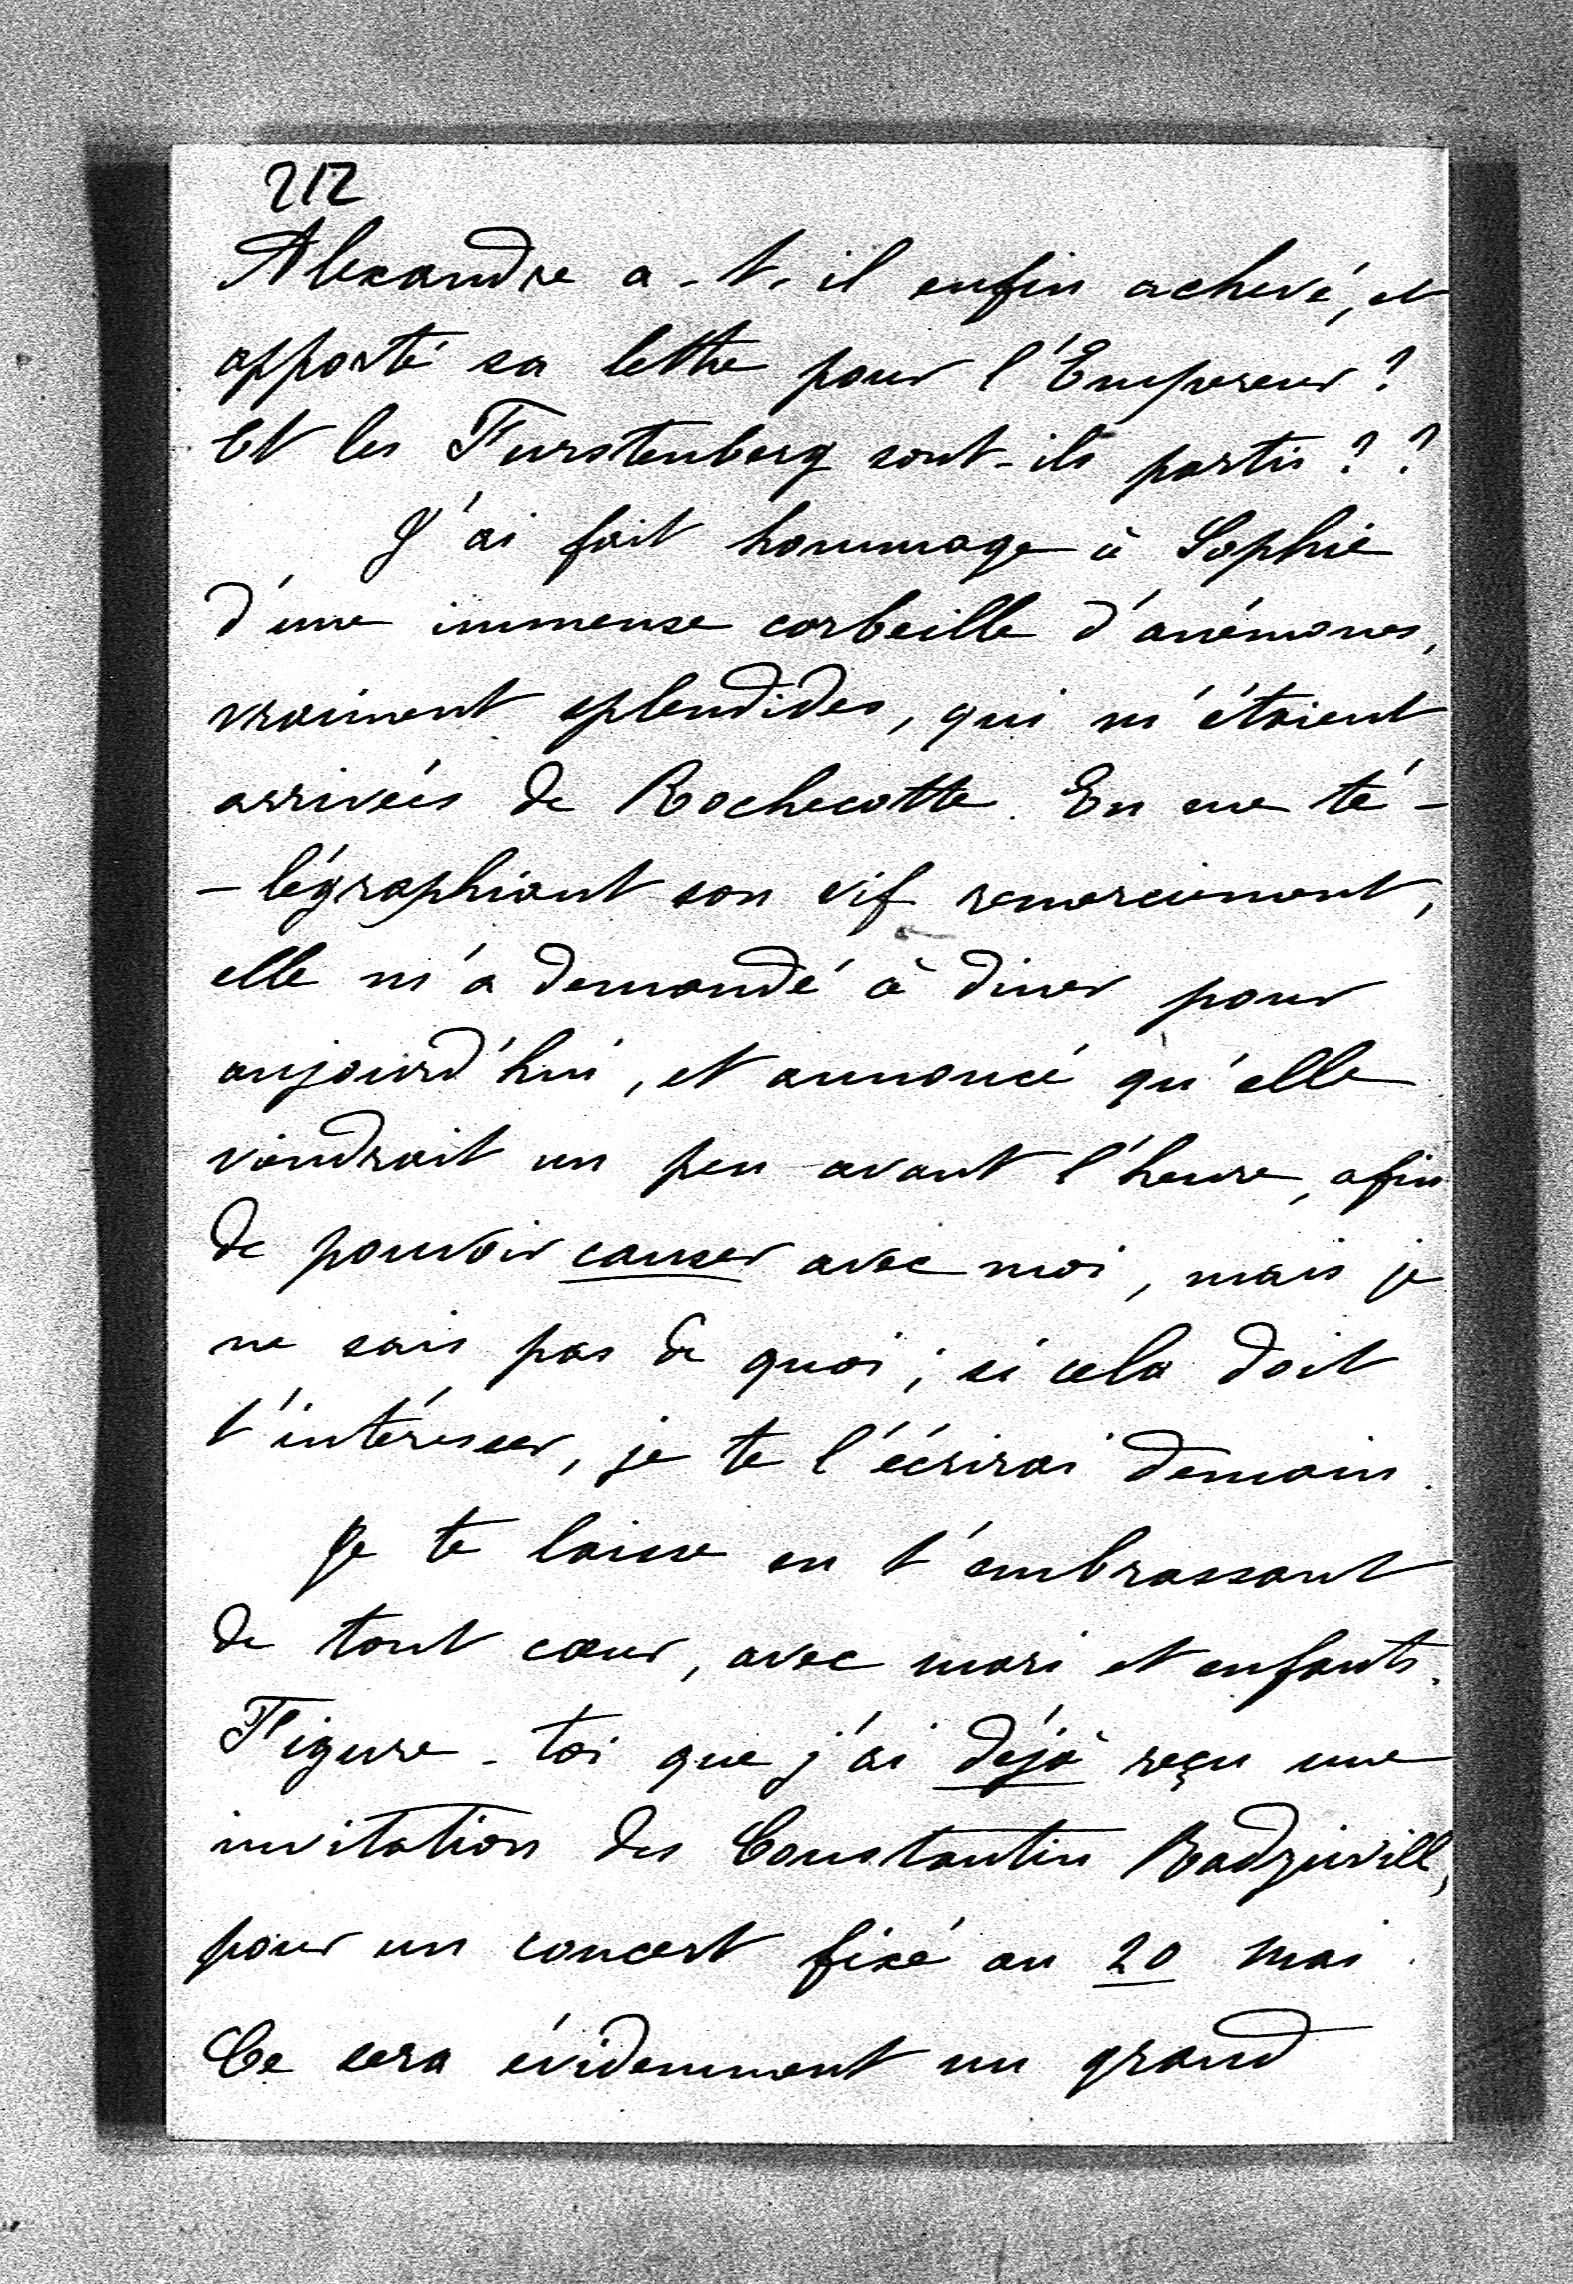 212
Alexandre a-t-il enfin achevé, et
apporté sa lettre pour l'Empereur ?
Et les Furstenberg sont-ils partis ? ?
J'ai fait hommage à Sophie
d'une immense corbeille d'anémones,
vraiment splendides, qui m'étaient
arrivées de Rochecotte. En me té-
-légraphiant son vif remerciement,
elle m'a demandé à diner pour
aujourd'hui, et annoncé qu'elle
viendrait un peu avant l'heure, afin
de pouvoir causer avec moi, mais je
ne sais pas de quoi ; si cela doit
t'intéresser, je te l'écrirai demain.
Je te laisse en t'embrassant
de tout cœur, avec mari et enfants.
Figure-toi que j'ai déjà reçu une
invitation des Constantin Radziwill,
pour un concert fixé au 20 mai.
Ce sera évidemment un grand